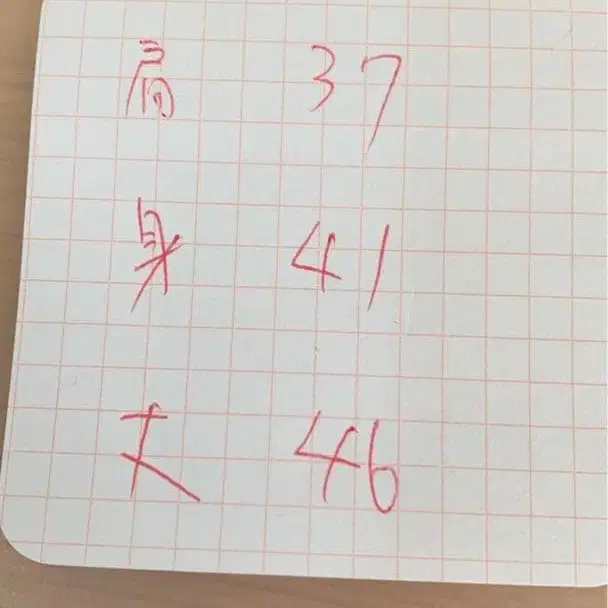 肩 37
身 41
丈 46